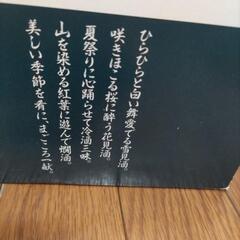 ひらひらと白い舞愛でる雪見酒。
咲きほこる桜に酔う花見酒。
夏祭りに心踊らせて冷酒三昧。
山を染める紅葉に遊んで燗酒。
美しい季節を肴に、まごころ一献。